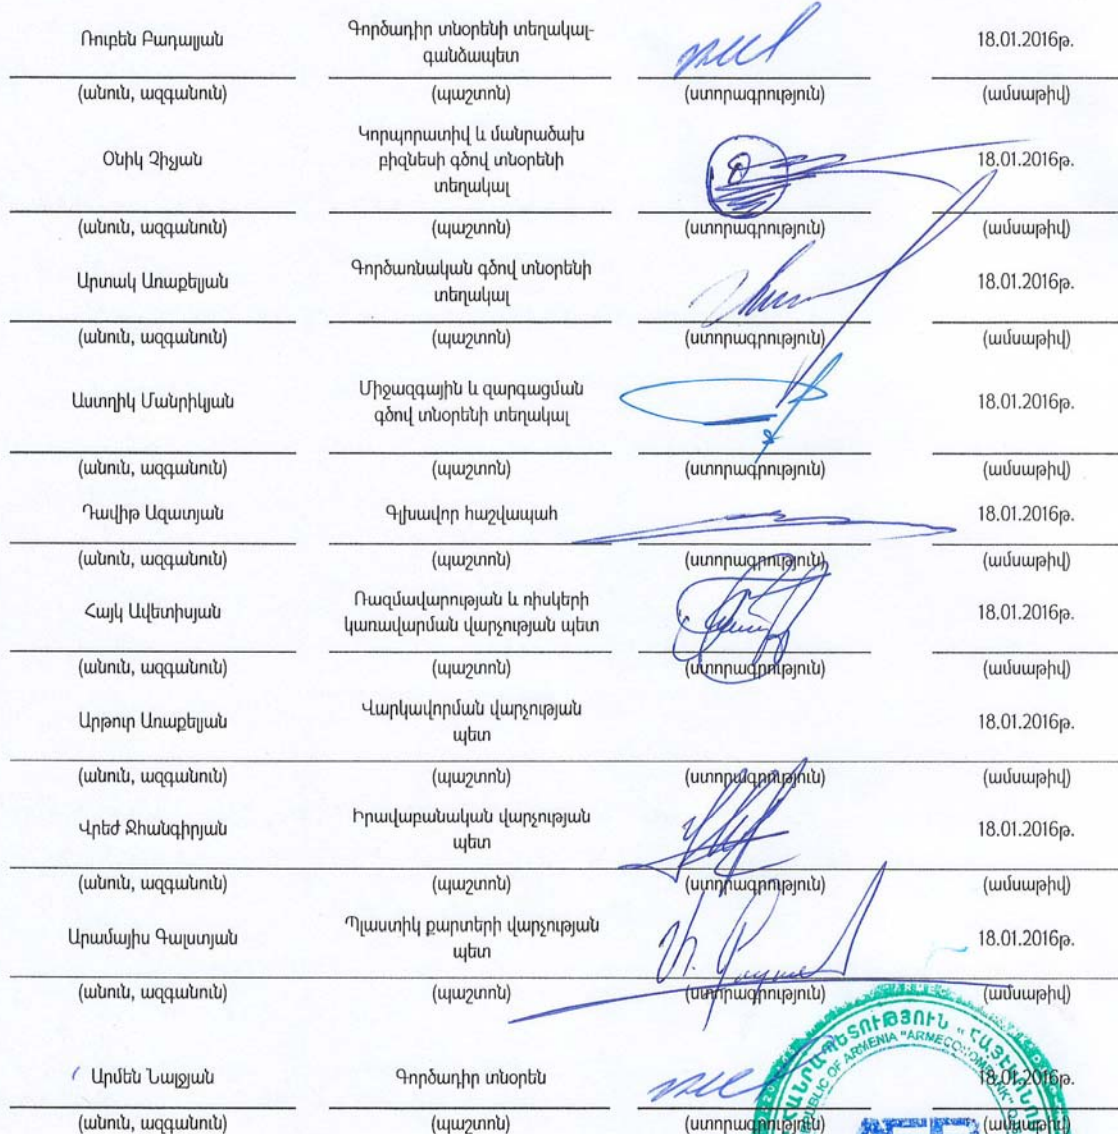 Ռուբեն Բադալյան Գործադիր տնօրենի տեղակալ- 18.01.2016թ.
գանձապետ
(անուն, ազգանուն) (պաշտոն) (ստորագրություն) (ամսաթիվ)
Կորպորատիվ և մանրածախ
Օնիկ Չիչյան բիզնեսի գծով տնօրենի 18.01.2016թ.
տեղակալ
(անուն, ազգանուն) (պաշտոն) (ստորագրություն) (ամսաթիվ)
Արտակ Առաքելյան Գործառնական գծով տնօրենի 18.01.2016թ.
տեղակալ
(անուն, ազգանուն) (պաշտոն) (ստորագրություն) (ամսաթիվ)
Աստղիկ Մանրիկյան Միջազգային և զարգացման 18.01.2016թ.
գծով տնօրենի տեղակալ
(անուն, ազգանուն) (պաշտոն) (ստորագրություն) (ամսաթիվ)
Դավիթ Ազատյան Գլխավոր հաշվապահ 18.01.2016թ.
(անուն, ազգանուն) (պաշտոն) (ստորագրություն) (ամսաթիվ)
Հայկ Ավետիսյան Ռազմավարության և ռիսկերի 18.01.2016թ.
կառավարման վարչության պետ
(անուն, ազգանուն) (պաշտոն) (ստորագրություն) (ամսաթիվ)
Արթուր Առաքելյան Վարկավորման վարչության 18.01.2016թ.
պետ
(անուն, ազգանուն) (պաշտոն) (ստորագրություն) (ամսաթիվ)
Վրեժ Ջհանգիրյան Իրավաբանական վարչության 18.01.2016թ.
պետ
(անուն, ազգանուն) (պաշտոն) (ստորագրություն) (ամսաթիվ)
Արամայիս Գալստյան Պլաստիկ քարտերի վարչության 18.01.2016թ.
պետ
(անուն, ազգանուն) (պաշտոն) (ստորագրություն) (ամսաթիվ)
Արմեն Նալջյան Գործադիր տնօրեն 18.01.2016թ.
(անուն, ազգանուն) (պաշտոն) (ստորագրություն) (ամսաթիվ)
OF ARMENIA